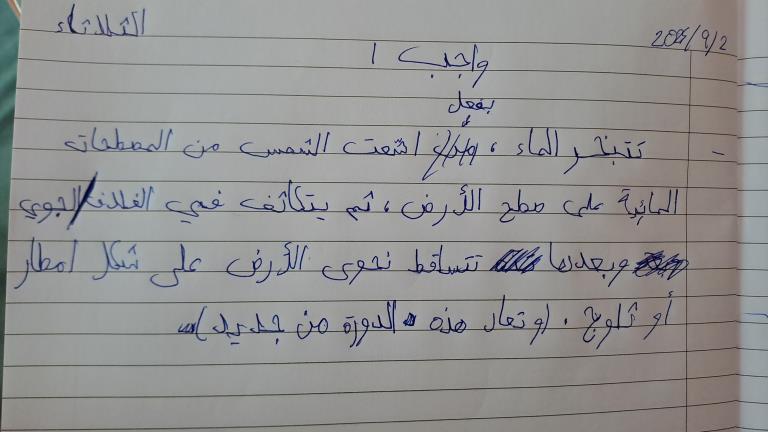 الثلاثاء
2025/9/2
واجب 1
بفعل
- تتبخر الماء ، اشعت الشمس من المصطحات
المائية على صطح الأرض ، ثم يتكاثف في الغلاف الجوي
وبعدها تتساقط نحوى الأرض على شكل امطار
أو ثلوج . (وتعاد هذه الدورة من جديد)